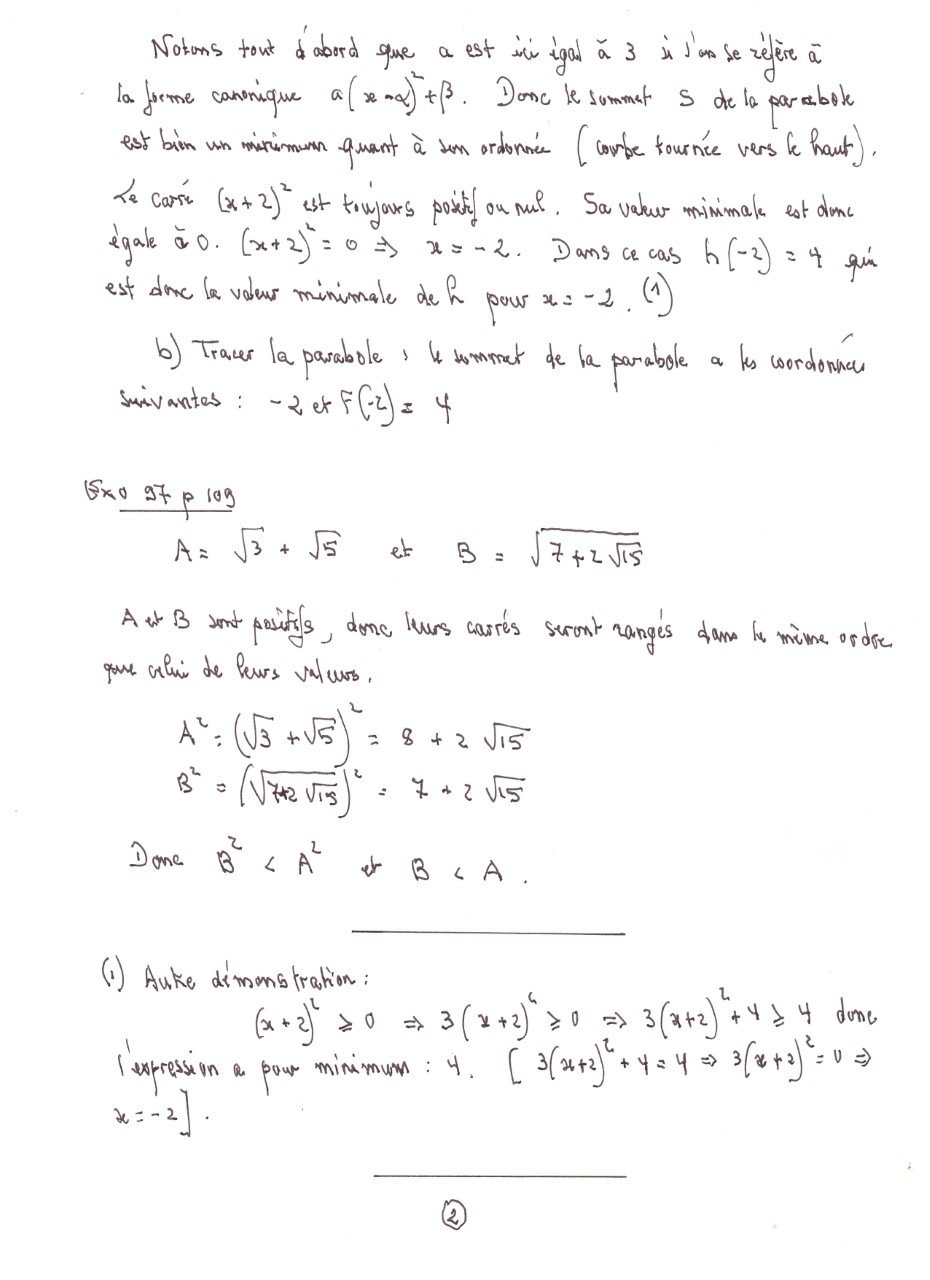 Notons tout d'abord que a est ici égal à 3 si l'on se réfère à
la forme canonique a(x-α)²+β. Donc le sommet S de la parabole
est bien un minimum quant à son ordonnée (courbe tournée vers le haut).
Le carré (x+2)² est toujours positif ou nul. Sa valeur minimale est donc
égale à 0. (x+2)² = 0 ⇒ x = -2. Dans ce cas h(-2) = 4 qui
est donc la valeur minimale de h pour x = -2. (1)
b) Tracer la parabole : le sommet de la parabole a les coordonnées
suivantes : -2 et F(-2) = 4
Exo 97 p 109
A = √3 + √5 et B = √(7+2√15)
A et B sont positifs, donc leurs carrés seront rangés dans le même ordre
que celui de leurs valeurs.
A² = (√3 + √5)² = 8 + 2 √15
B² = (√(7+2√15))² = 7 + 2 √15
Donc B² < A² et B < A.
(1) Autre démonstration :
(x+2)² ≥ 0 ⇒ 3(x+2)² ≥ 0 ⇒ 3(x+2)² + 4 ≥ 4 donc
l'expression a pour minimum : 4. [3(x+2)² + 4 = 4 ⇒ 3(x+2)² = 0 ⇒
x = -2].
2